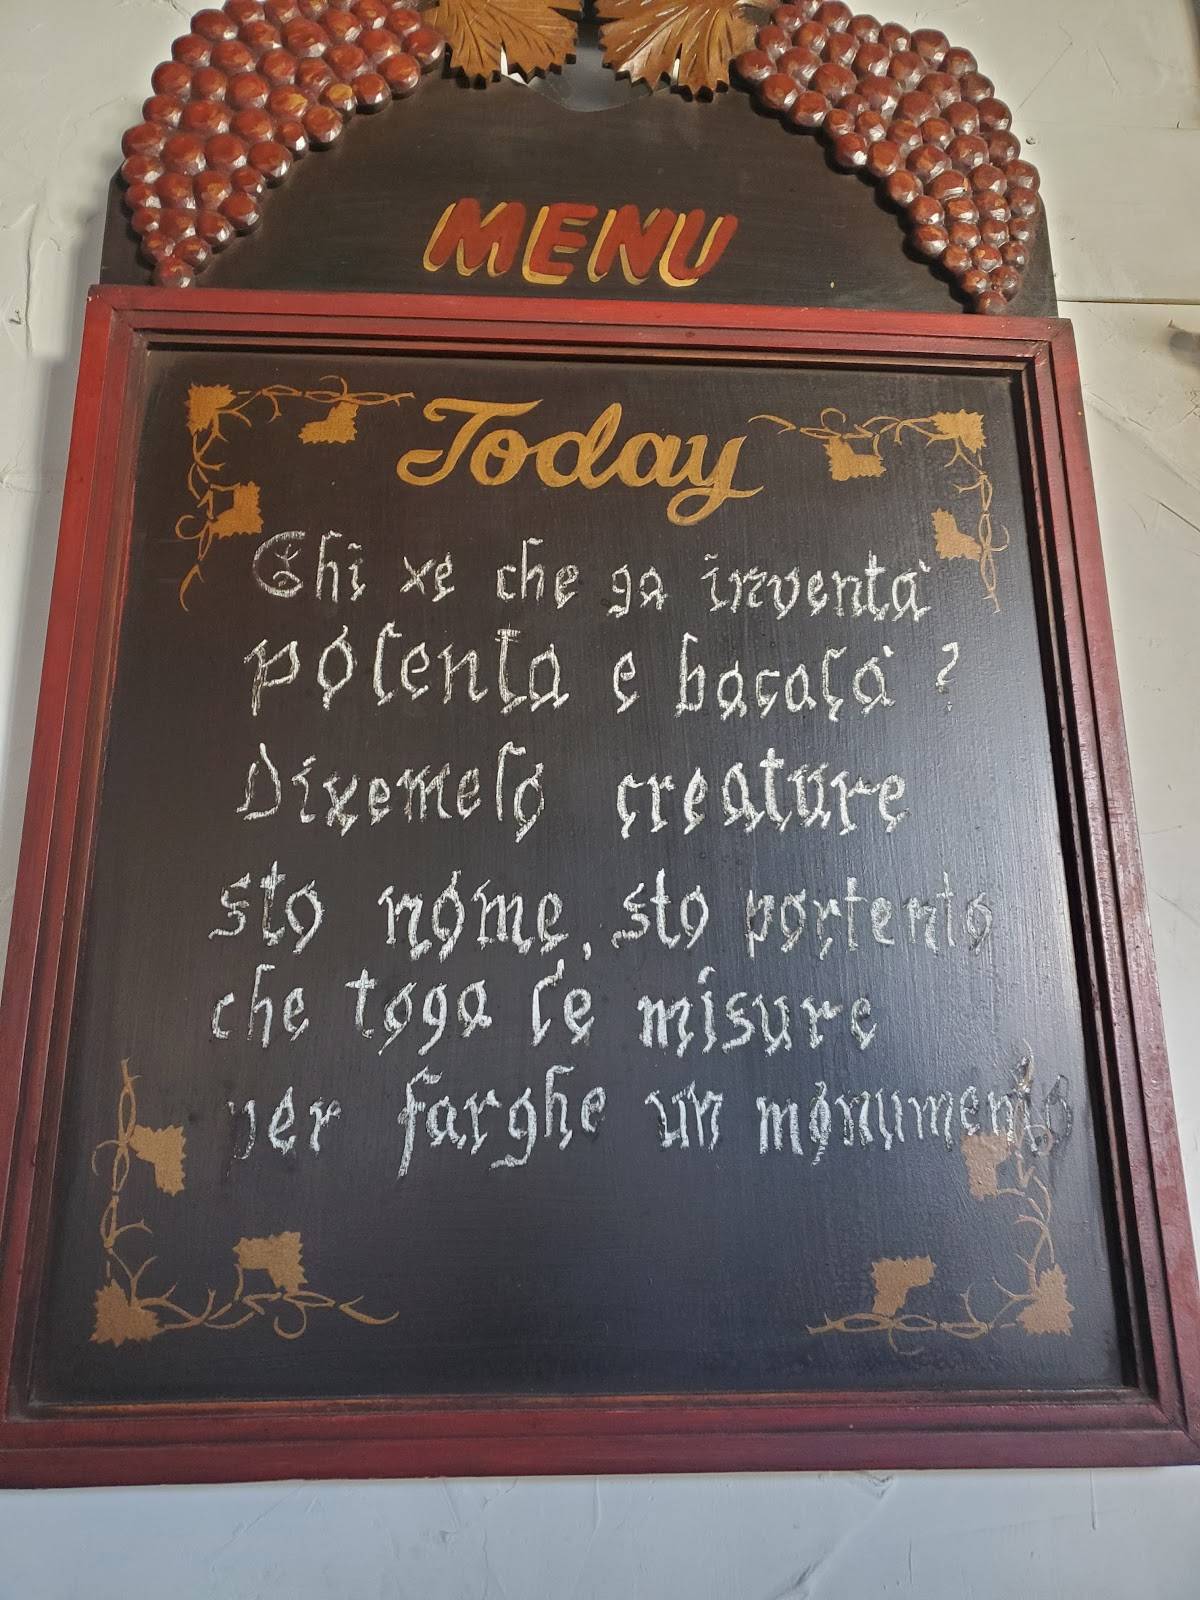 MENU
Today
Chi xe che ga inventà
polenta e bacalà ?
Dixemelo creature
sto nome, sto portento
che toga le misure
per farghe un monumento